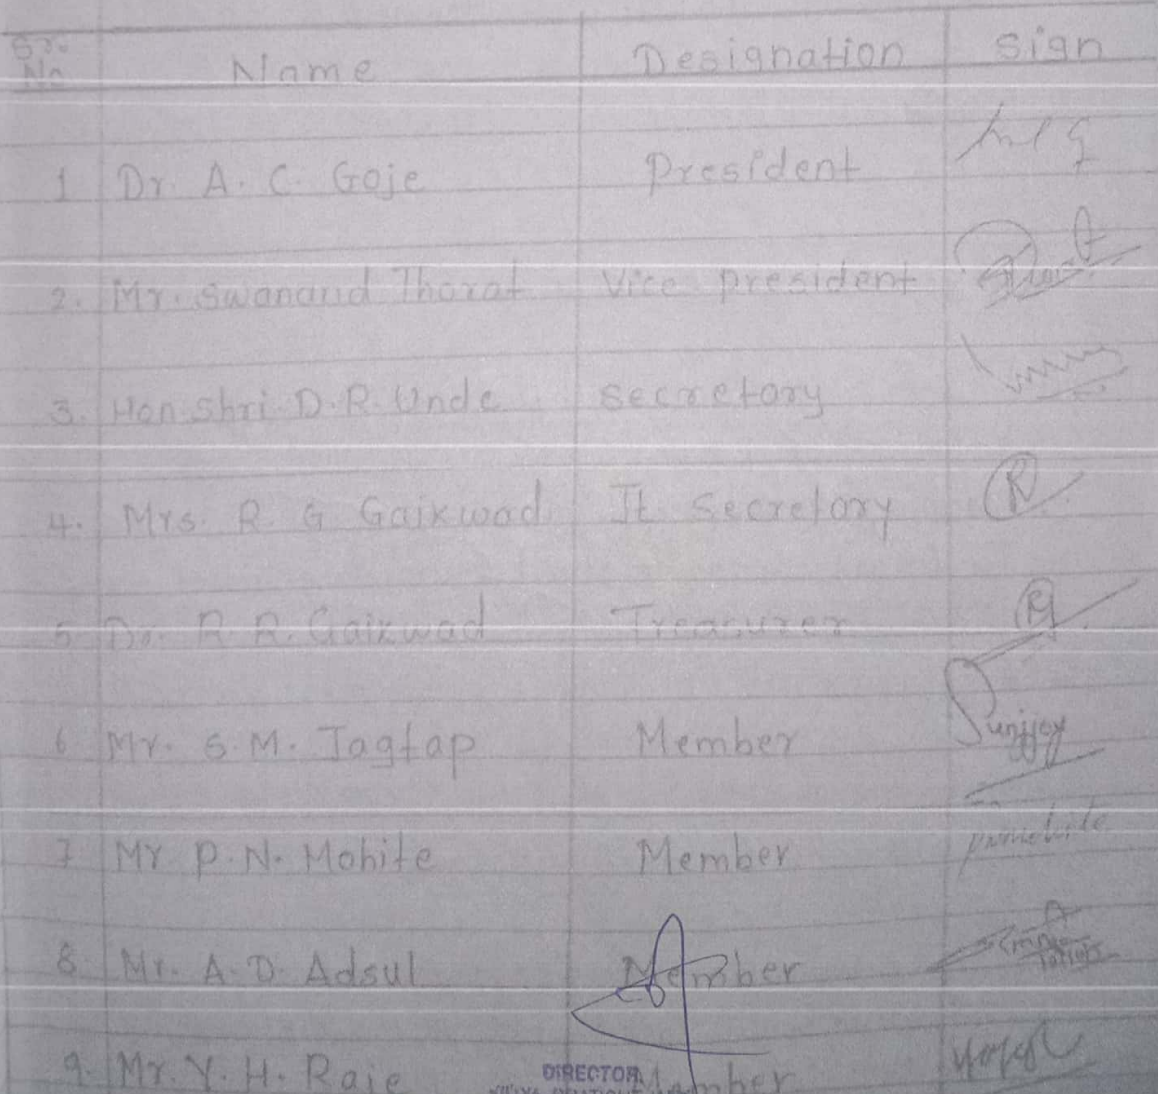 Sr. No Name Designation Sign
1 Dr. A. C. Goje President
2. Mr. Swanand Thorat Vice president
3. Hon Shri D.R. Unde Secretory
4. Mrs. R G Gaikwad Jt Secretory
5 Dr. R R. Gaikwad Treasurer
6 Mr. S.M. Jagtap Member Sunjjey
7 Mr P.N. Mohite Member pnmohite
8 Mr. A.D. Adsul Member
9. Mr. Y. H. Raje Member
DIRECTOR